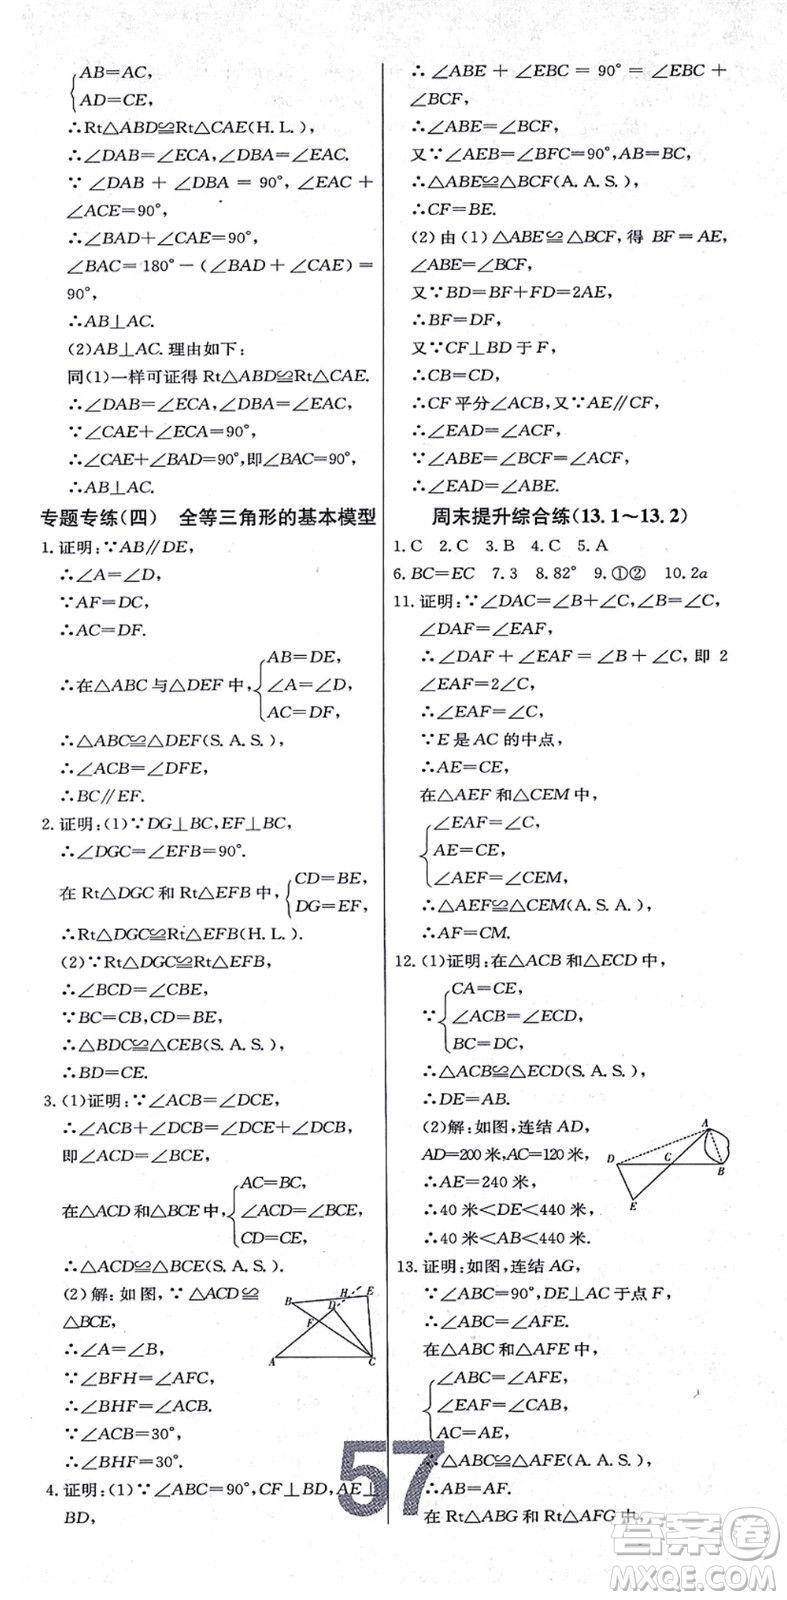 AB=AC,
AD=CE,
∴Rt△ABD≌Rt△CAE(H.L.),
∴∠DAB=∠ECA,∠DBA=∠EAC.
∵∠DAB+∠DBA=90°,∠EAC+
∠ACE=90°,
∴∠BAD+∠CAE=90°,
∠BAC=180°-(∠BAD+∠CAE)=
90°,
∴AB⊥AC.
(2)AB⊥AC.理由如下:
同(1)一样可证得Rt△ABD≌Rt△CAE.
∴∠DAB=∠ECA,∠DBA=∠EAC,
∵∠CAE+∠ECA=90°,
∴∠CAE+∠BAD=90°,即∠BAC=90°,
∴AB⊥AC.
专题专练(四) 全等三角形的基本模型
1.证明:∵AB∥DE,
∴∠A=∠D,
∵AF=DC,
∴AC=DF.
∴在△ABC与△DEF中,
AB=DE,
∠A=∠D,
AC=DF,
∴△ABC≌△DEF(S.A.S.),
∴∠ACB=∠DFE,
∴BC∥EF.
2.证明:(1)∵DG⊥BC,EF⊥BC,
∴∠DGC=∠EFB=90°.
在Rt△DGC和Rt△EFB中,
CD=BE,
DG=EF,
∴Rt△DGC≌Rt△EFB(H.L.).
(2)∵Rt△DGC≌Rt△EFB,
∴∠BCD=∠CBE,
∵BC=CB,CD=BE,
∴△BDC≌△CEB(S.A.S.),
∴BD=CE.
3.(1)证明:∵∠ACB=∠DCE,
∴∠ACB+∠DCB=∠DCE+∠DCB,
即∠ACD=∠BCE,
在△ACD和△BCE中,
AC=BC,
∠ACD=∠BCE,
CD=CE,
∴△ACD≌△BCE(S.A.S.).
(2)解:如图,∵△ACD≌
△BCE,
∴∠A=∠B,
∵∠BFH=∠AFC,
∴∠BHF=∠ACB.
∵∠ACB=30°,
∴∠BHF=30°.
B D H E
F
A C
4.证明:(1)∵∠ABC=90°,CF⊥BD,AE⊥
BD,
∴∠ABE+∠EBC=90°=∠EBC+
∠BCF,
∴∠ABE=∠BCF,
又∵∠AEB=∠BFC=90°,AB=BC,
∴△ABE≌△BCF(A.A.S.),
∴CF=BE.
(2)由(1)△ABE≌△BCF,得BF=AE,
∠ABE=∠BCF,
又∵BD=BF+FD=2AE,
∴BF=DF,
又∵CF⊥BD于F,
∴CB=CD,
∴CF平分∠ACB,又∵AE∥CF,
∴∠EAD=∠ACF,
∴∠ABE=∠BCF=∠ACF,
∴∠EAD=∠ABE.
周末提升综合练(13.1～13.2)
1.C 2.C 3.B 4.C 5.A
6.BC=EC 7.3 8.82° 9.①② 10.2a
11.证明:∵∠DAC=∠B+∠C,∠B=∠C,
∠DAF=∠EAF,
∴∠DAF+∠EAF=∠B+∠C,即2
∠EAF=2∠C,
∴∠EAF=∠C,
∵E是AC的中点,
∴AE=CE,
在△AEF和△CEM中,
∠EAF=∠C,
AE=CE,
∠AEF=∠CEM,
∴△AEF≌△CEM(A.S.A.),
∴AF=CM.
12.(1)证明:在△ACB和△ECD中,
∵
CA=CE,
∠ACB=∠ECD,
BC=DC,
∴△ACB≌△ECD(S.A.S.),
∴DE=AB.
(2)解:如图,连结AD,
AD=200米,AC=120米,
∴AE=240米,
∴40米<DE<440米,
∴40米<AB<440米.
A
D C B
E
13.证明:如图,连结AG,
∵∠ABC=90°,DE⊥AC于点F,
∴∠ABC=∠AFE.
在△ABC和△AFE中,
∠ABC=∠AFE,
∠EAF=∠CAB,
AC=AE,
∴△ABC≌△AFE(A.A.S.),
∴AB=AF.
在Rt△ABG和Rt△AFG中,
57
答案圈
MXQE.COM